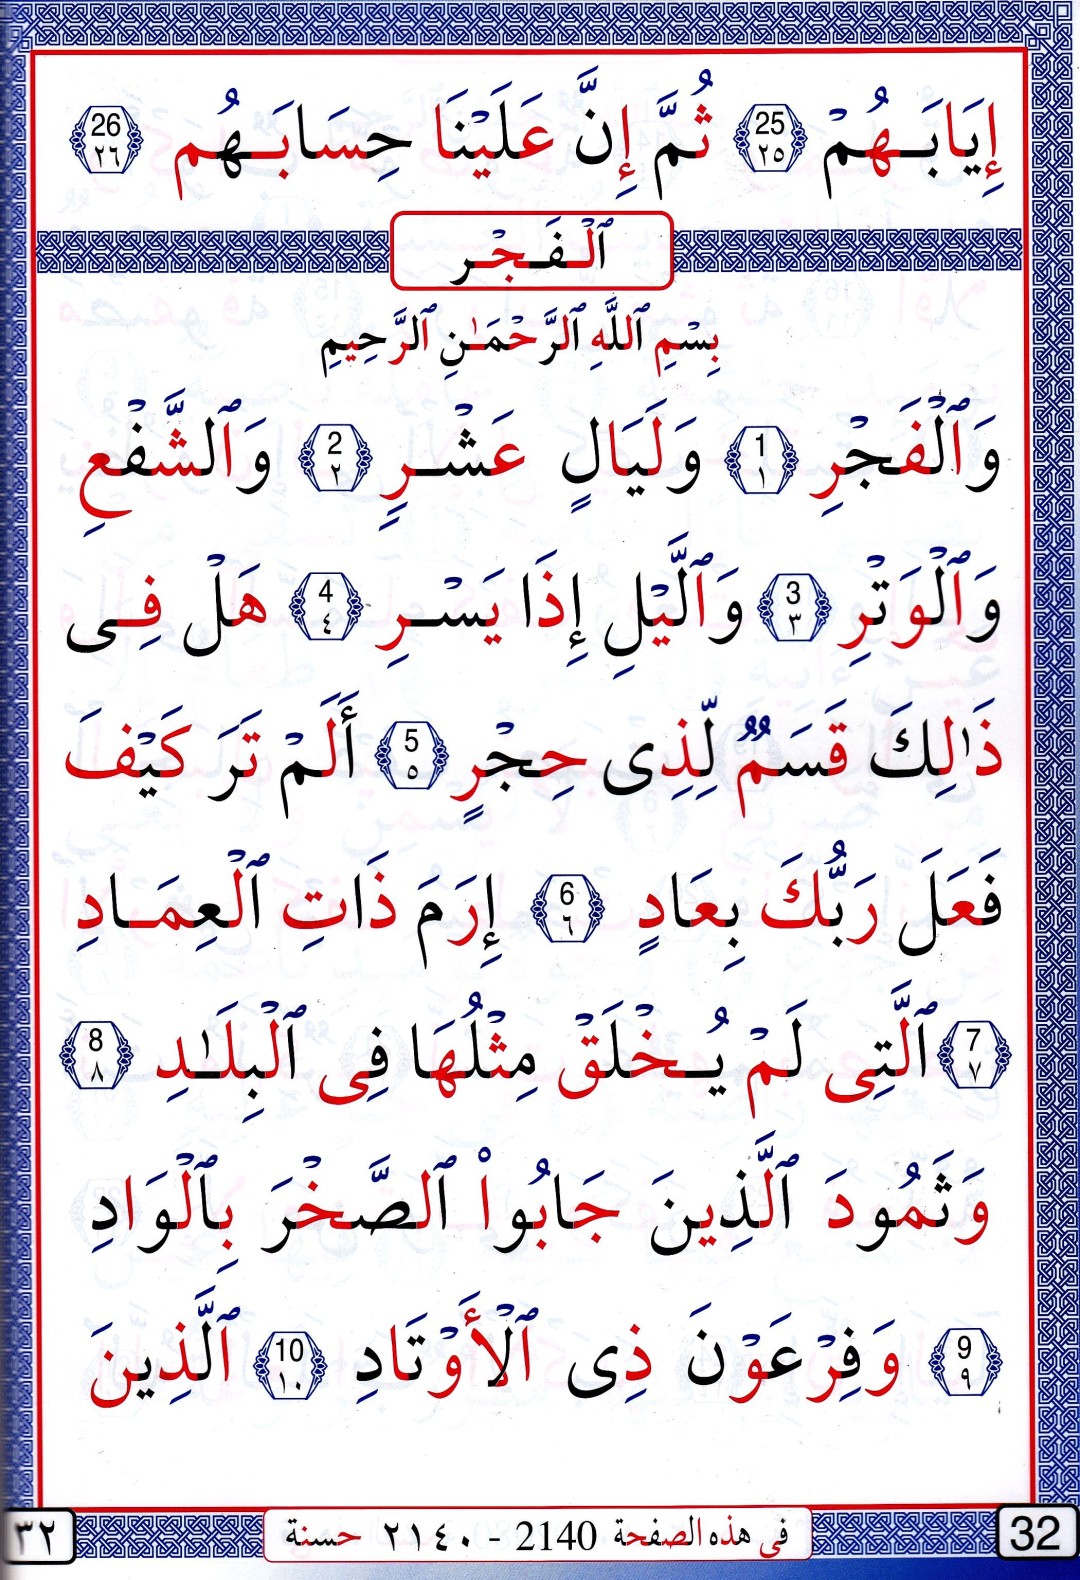 إِيَابَهُمْ 25 ٢٥ ثُمَّ إِنَّ عَلَيْنَا حِسَابَهُم 26 ٢٦
ٱلْفَجْر
بِسْمِ ٱللَّهِ ٱلرَّحْمَـٰنِ ٱلرَّحِيمِ
وَٱلْفَجْرِ 1 ١ وَلَيَالٍ عَشْرٍ 2 ٢ وَٱلشَّفْعِ
وَٱلْوَتْرِ 3 ٣ وَٱلَّيْلِ إِذَا يَسْرِ 4 ٤ هَلْ فِى
ذَٰلِكَ قَسَمٌ لِّذِى حِجْرٍ 5 ٥ أَلَمْ تَرَ كَيْفَ
فَعَلَ رَبُّكَ بِعَادٍ 6 ٦ إِرَمَ ذَاتِ ٱلْعِمَادِ
7 ٧ ٱلَّتِى لَمْ يُخْلَقْ مِثْلُهَا فِى ٱلْبِلَـٰدِ 8 ٨
وَثَمُودَ ٱلَّذِينَ جَابُوا۟ ٱلصَّخْرَ بِٱلْوَادِ
9 ٩ وَفِرْعَوْنَ ذِى ٱلْأَوْتَادِ 10 ١٠ ٱلَّذِينَ
32 فى هذه الصفحة 2140 - ٢١٤٠ حسنة ٣٢